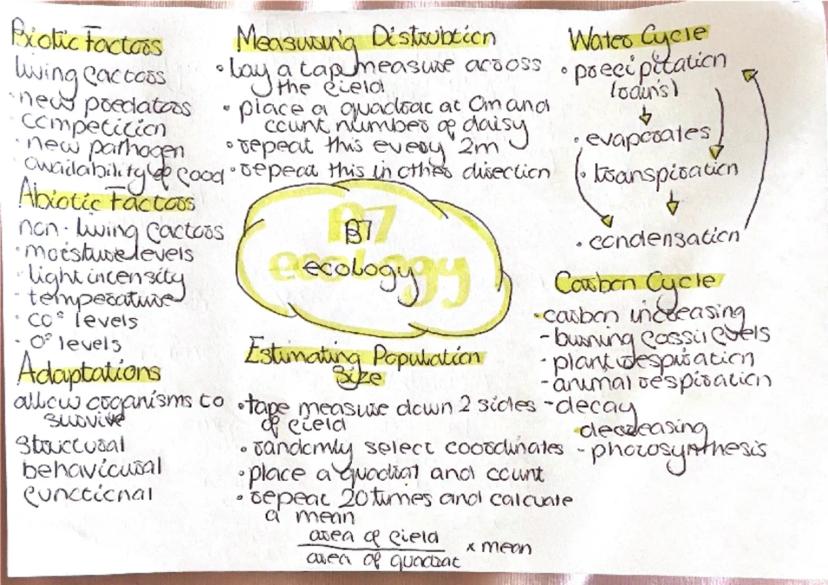 Biotic Factors
living factors
· new predators
· competition
· new pathogen
· availability of food
Abiotic Factors
non-living factors
· moisture levels
· light intensity
· temperature
· CO² levels
· O² levels
Adaptations
allow organisms to
survive
structural
behavioural
functional
Measuring Distrubtion
· lay a tap measure across
the field
· place a quadrat at 0m and
count number of daisy
· repeat this every 2m
· repeat this in other direction
B7
ecology
Estimating Population
Size
· tape measure down 2 sides
of field
· randomly select coordinates
· place a quadrat and count
· repeat 20 times and calcuate
a mean
area of field
area of quadrat
× mean
Water Cycle
· precipitation
(rains)
· evaporates
· transpiration
· condensation
Carbon Cycle
· carbon increasing
- burning fossil fuels
- plant respiration
- animal respiration
- decay
· decreasing
- photosynthesis